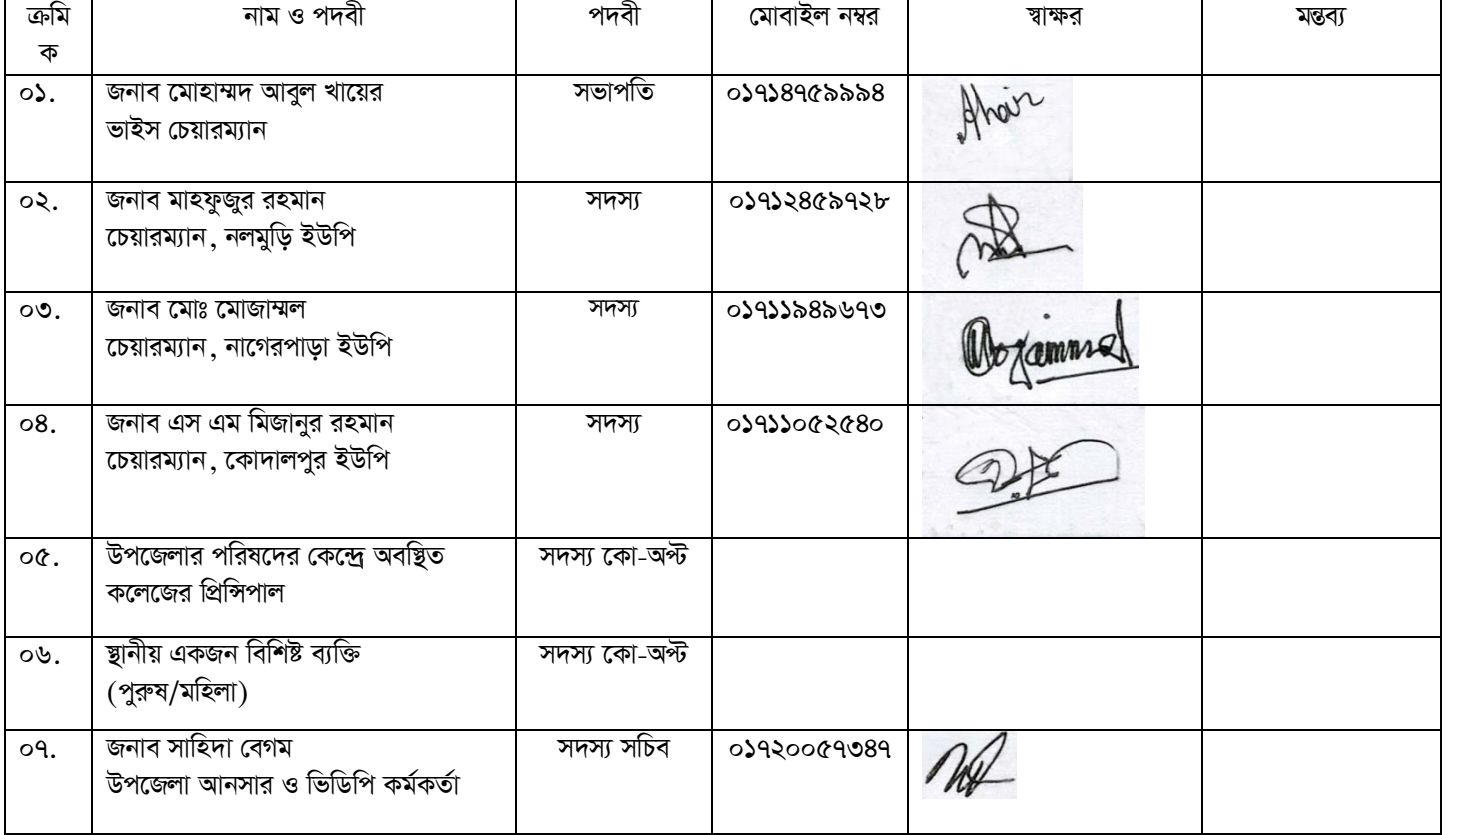 ক্রমি
ক
নাম ও পদবী
পদবী
মোবাইল নম্বর
স্বাক্ষর
মন্তব্য
০১.
জনাব মোহাম্মদ আবুল খায়ের
ভাইস চেয়ারম্যান
সভাপতি
০১৭১৪৭৫৯৯৯৪
০২.
জনাব মাহফুজুর রহমান
চেয়ারম্যান, নলমুড়ি ইউপি
সদস্য
০১৭১২৪৫৯৭২৮
০৩.
জনাব মোঃ মোজাম্মল
চেয়ারম্যান, নাগেরপাড়া ইউপি
সদস্য
০১৭১১৯৪৯৬৭৩
Mogammal
০৪.
জনাব এস এম মিজানুর রহমান
চেয়ারম্যান, কোদালপুর ইউপি
সদস্য
০১৭১১০৫২৫৪০
০৫.
উপজেলার পরিষদের কেন্দ্রে অবস্থিত
কলেজের প্রিন্সিপাল
সদস্য কো-অপ্ট
০৬.
স্থানীয় একজন বিশিষ্ট ব্যক্তি
(পুরুষ/মহিলা)
সদস্য কো-অপ্ট
০৭.
জনাব সাহিদা বেগম
উপজেলা আনসার ও ভিডিপি কর্মকর্তা
সদস্য সচিব
০১৭২০০৫৭৩৪৭